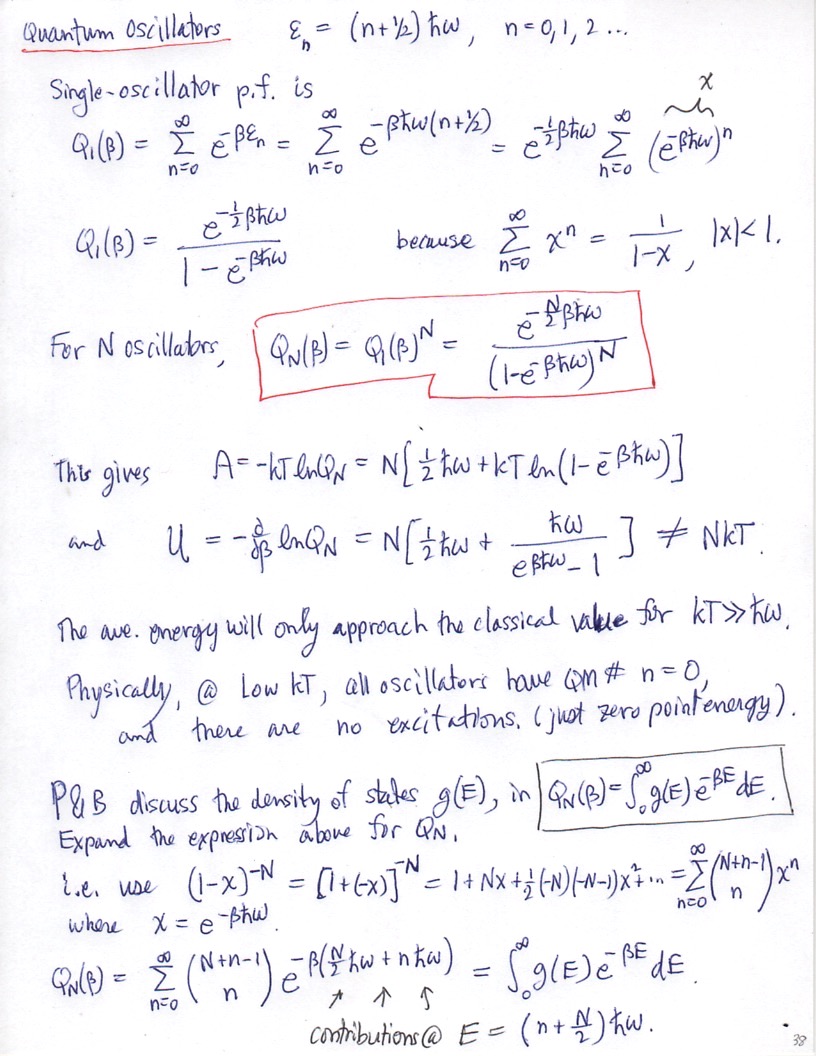 Quantum Oscillators   εₙ = (n+½) ħω, n=0,1,2 ...
Single-oscillator p.f. is
Q₁(β) = Σ_{n=0}^{∞} e^{-βεₙ} = Σ_{n=0}^{∞} e^{-βħω(n+½)} = e^{-½βħω} Σ_{n=0}^{∞} (e^{-βħω})ⁿ   x
Q₁(β) = e^{-½βħω} / (1 - e^{-βħω})   because Σ_{n=0}^{∞} xⁿ = 1/(1-x), |x|<1.
For N oscillators, Q_N(β) = Q₁(β)^N = e^{-N/2 βħω} / (1-e^{-βħω})^N
This gives A = -kT ln Q_N = N[½ħω + kT ln(1-e^{-βħω})]
and U = -∂/∂β ln Q_N = N[½ħω + ħω/(e^{βħω}-1)] ≠ NkT.
The ave. energy will only approach the classical value for kT≫ħω.
Physically, @ Low kT, all oscillators have QM # n=0,
and there are no excitations. (just zero point energy).
P&B discuss the density of states g(E), in Q_N(β) = ∫₀^∞ g(E) e^{-βE} dE.
Expand the expression above for Q_N.
i.e. use (1-x)^{-N} = [1+(-x)]^{-N} = 1 + Nx + ½(-N)(-N-1)x² + ... = Σ_{n=0}^{∞} (N+n-1 over n) xⁿ
where x = e^{-βħω}.
Q_N(β) = Σ_{n=0}^{∞} (N+n-1 over n) e^{-β(N/2 ħω + nħω)} = ∫₀^∞ g(E) e^{-βE} dE.
contributions @ E = (n + N/2) ħω.
38